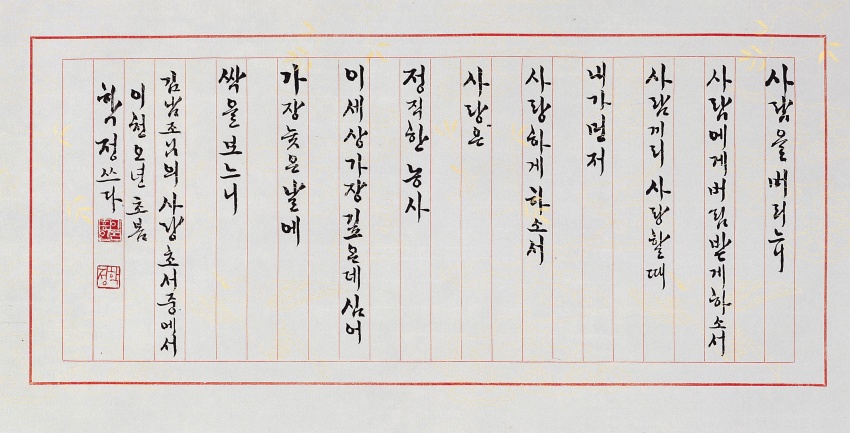 사람을 버리느니
사람에게 버림받게 하소서
사람끼리 사랑할 때
내가 먼저
사랑하게 하소서
사랑은
정직한 농사
이 세상 가장 깊은 데 심어
가장 늦은 날에
싹을 보느니
김남조님의 사랑초서 중에서
이천오년 초봄
학정 쓰다
학정